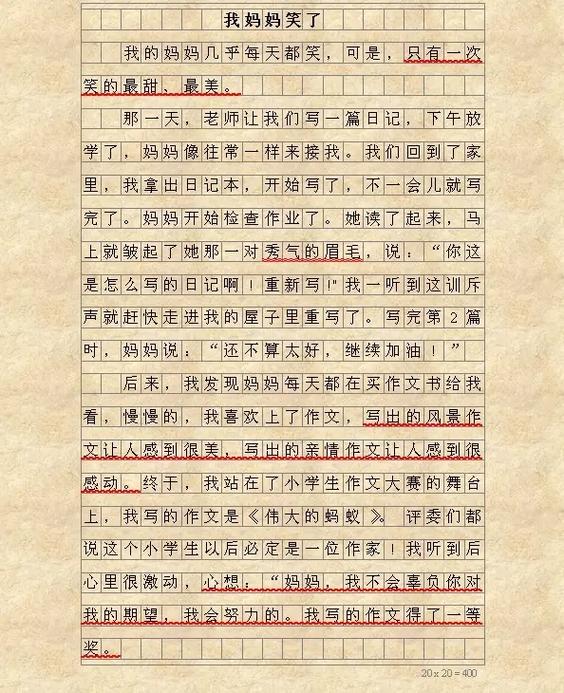 我妈妈笑了
我的妈妈几乎每天都笑，可是，只有一次
笑的最甜、最美。
那一天，老师让我们写一篇日记，下午放
学了，妈妈像往常一样来接我。我们回到了家
里，我拿出日记本，开始写了，不一会儿就写
完了。妈妈开始检查作业了。她读了起来，马
上就皱起了她那一对秀气的眉毛，说：“你这
是怎么写的日记啊！重新写!"我一听到这训斥
声就赶快走进我的屋子里重写了。写完第2篇
时，妈妈说：“还不算太好，继续加油！”
后来，我发现妈妈每天都在买作文书给我
看，慢慢的，我喜欢上了作文，写出的风景作
文让人感到很美，写出的亲情作文让人感到很
感动。终于，我站在了小学生作文大赛的舞台
上，我写的作文是《伟大的蚂蚁》。评委们都
说这个小学生以后必定是一位作家！我听到后
心里很激动，心想：“妈妈，我不会辜负你对
我的期望，我会努力的。我写的作文得了一等
奖。
20 x 20 = 400